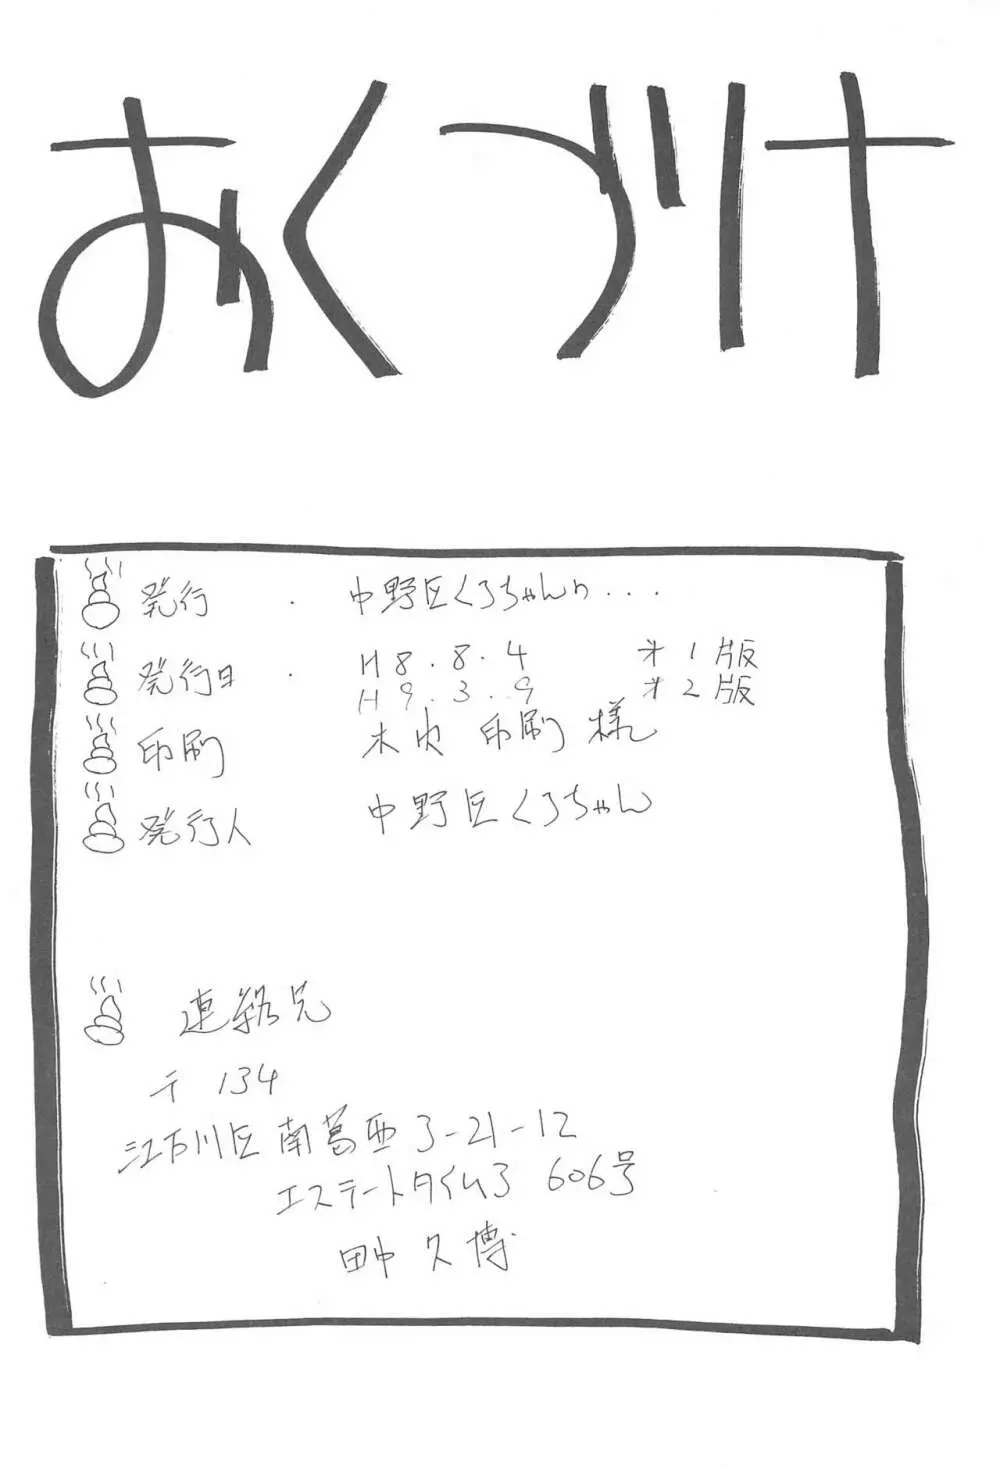 おくづけ
発行 . 中野区くろちゃんη...
発行日 . H8.8.4 オ1版
H9.3.9 オ2版
印刷 木内印刷様
発行人 中野区くろちゃん
連絡先
〒134
江戸川区南葛西3-21-12
エステートタイム3 606号
田中久博